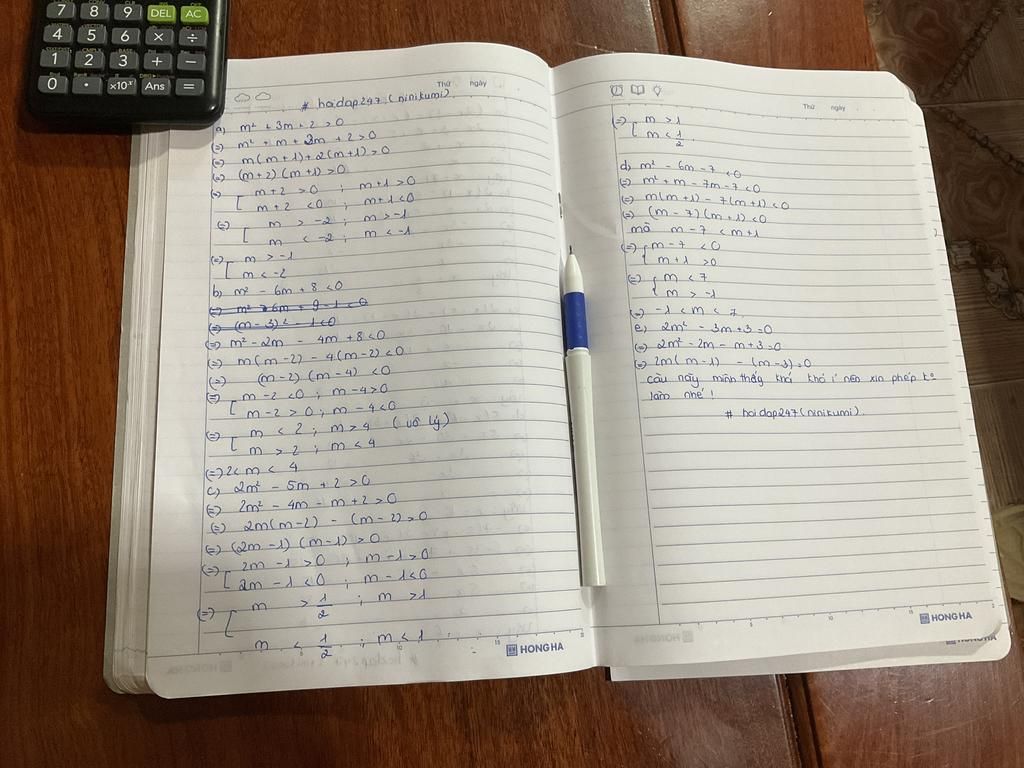 7 8 9 DEL AC
4 5 6 × ÷
1 2 3 + −
0 • ×10ˣ Ans =
Thứ ngày
# hoidap247 (ninikumi)
a) m² + 3m + 2 > 0
(=) m² + m + 2m + 2 > 0
(=) m(m+1) + 2(m+1) > 0
(=) (m+2)(m+1) > 0
(=) [ m+2 > 0 ; m+1 > 0
m+2 < 0 ; m+1 < 0
(=) [ m > -2 ; m > -1
m < -2 ; m < -1
(=) [ m > -1
m < -2
b) m² - 6m + 8 < 0
(=) m² - 2m - 4m + 8 < 0
(=) m(m-2) - 4(m-2) < 0
(=) (m-2)(m-4) < 0
(=) [ m-2 < 0 ; m-4 > 0
m-2 > 0 ; m-4 < 0
(=) [ m < 2 ; m > 4 (vô lý)
m > 2 ; m < 4
(=) 2 < m < 4
c) 2m² - 5m + 2 > 0
(=) 2m² - 4m - m + 2 > 0
(=) 2m(m-2) - (m-2) > 0
(=) (2m-1)(m-1) > 0
(=) [ 2m-1 > 0 ; m-1 > 0
2m-1 < 0 ; m-1 < 0
(=) [ m > 1/2 ; m > 1
m < 1/2 ; m < 1
HONG HA
Thứ ngày
(=) [ m > 1
m < 1/2
d) m² - 6m - 7 < 0
(=) m² + m - 7m - 7 < 0
(=) m(m+1) - 7(m+1) < 0
(=) (m-7)(m+1) < 0
mà m-7 < m+1
(=) { m-7 < 0
m+1 > 0
(=) { m < 7
m > -1
(=) -1 < m < 7
e) 2m² - 3m + 3 = 0
(=) 2m² - 2m - m + 3 = 0
(=) 2m(m-1) - (m-3) = 0
câu này mình thấy khá khó í nên xin phép k°
làm nhé !
# hoidap247 (ninikumi).
HONG HA